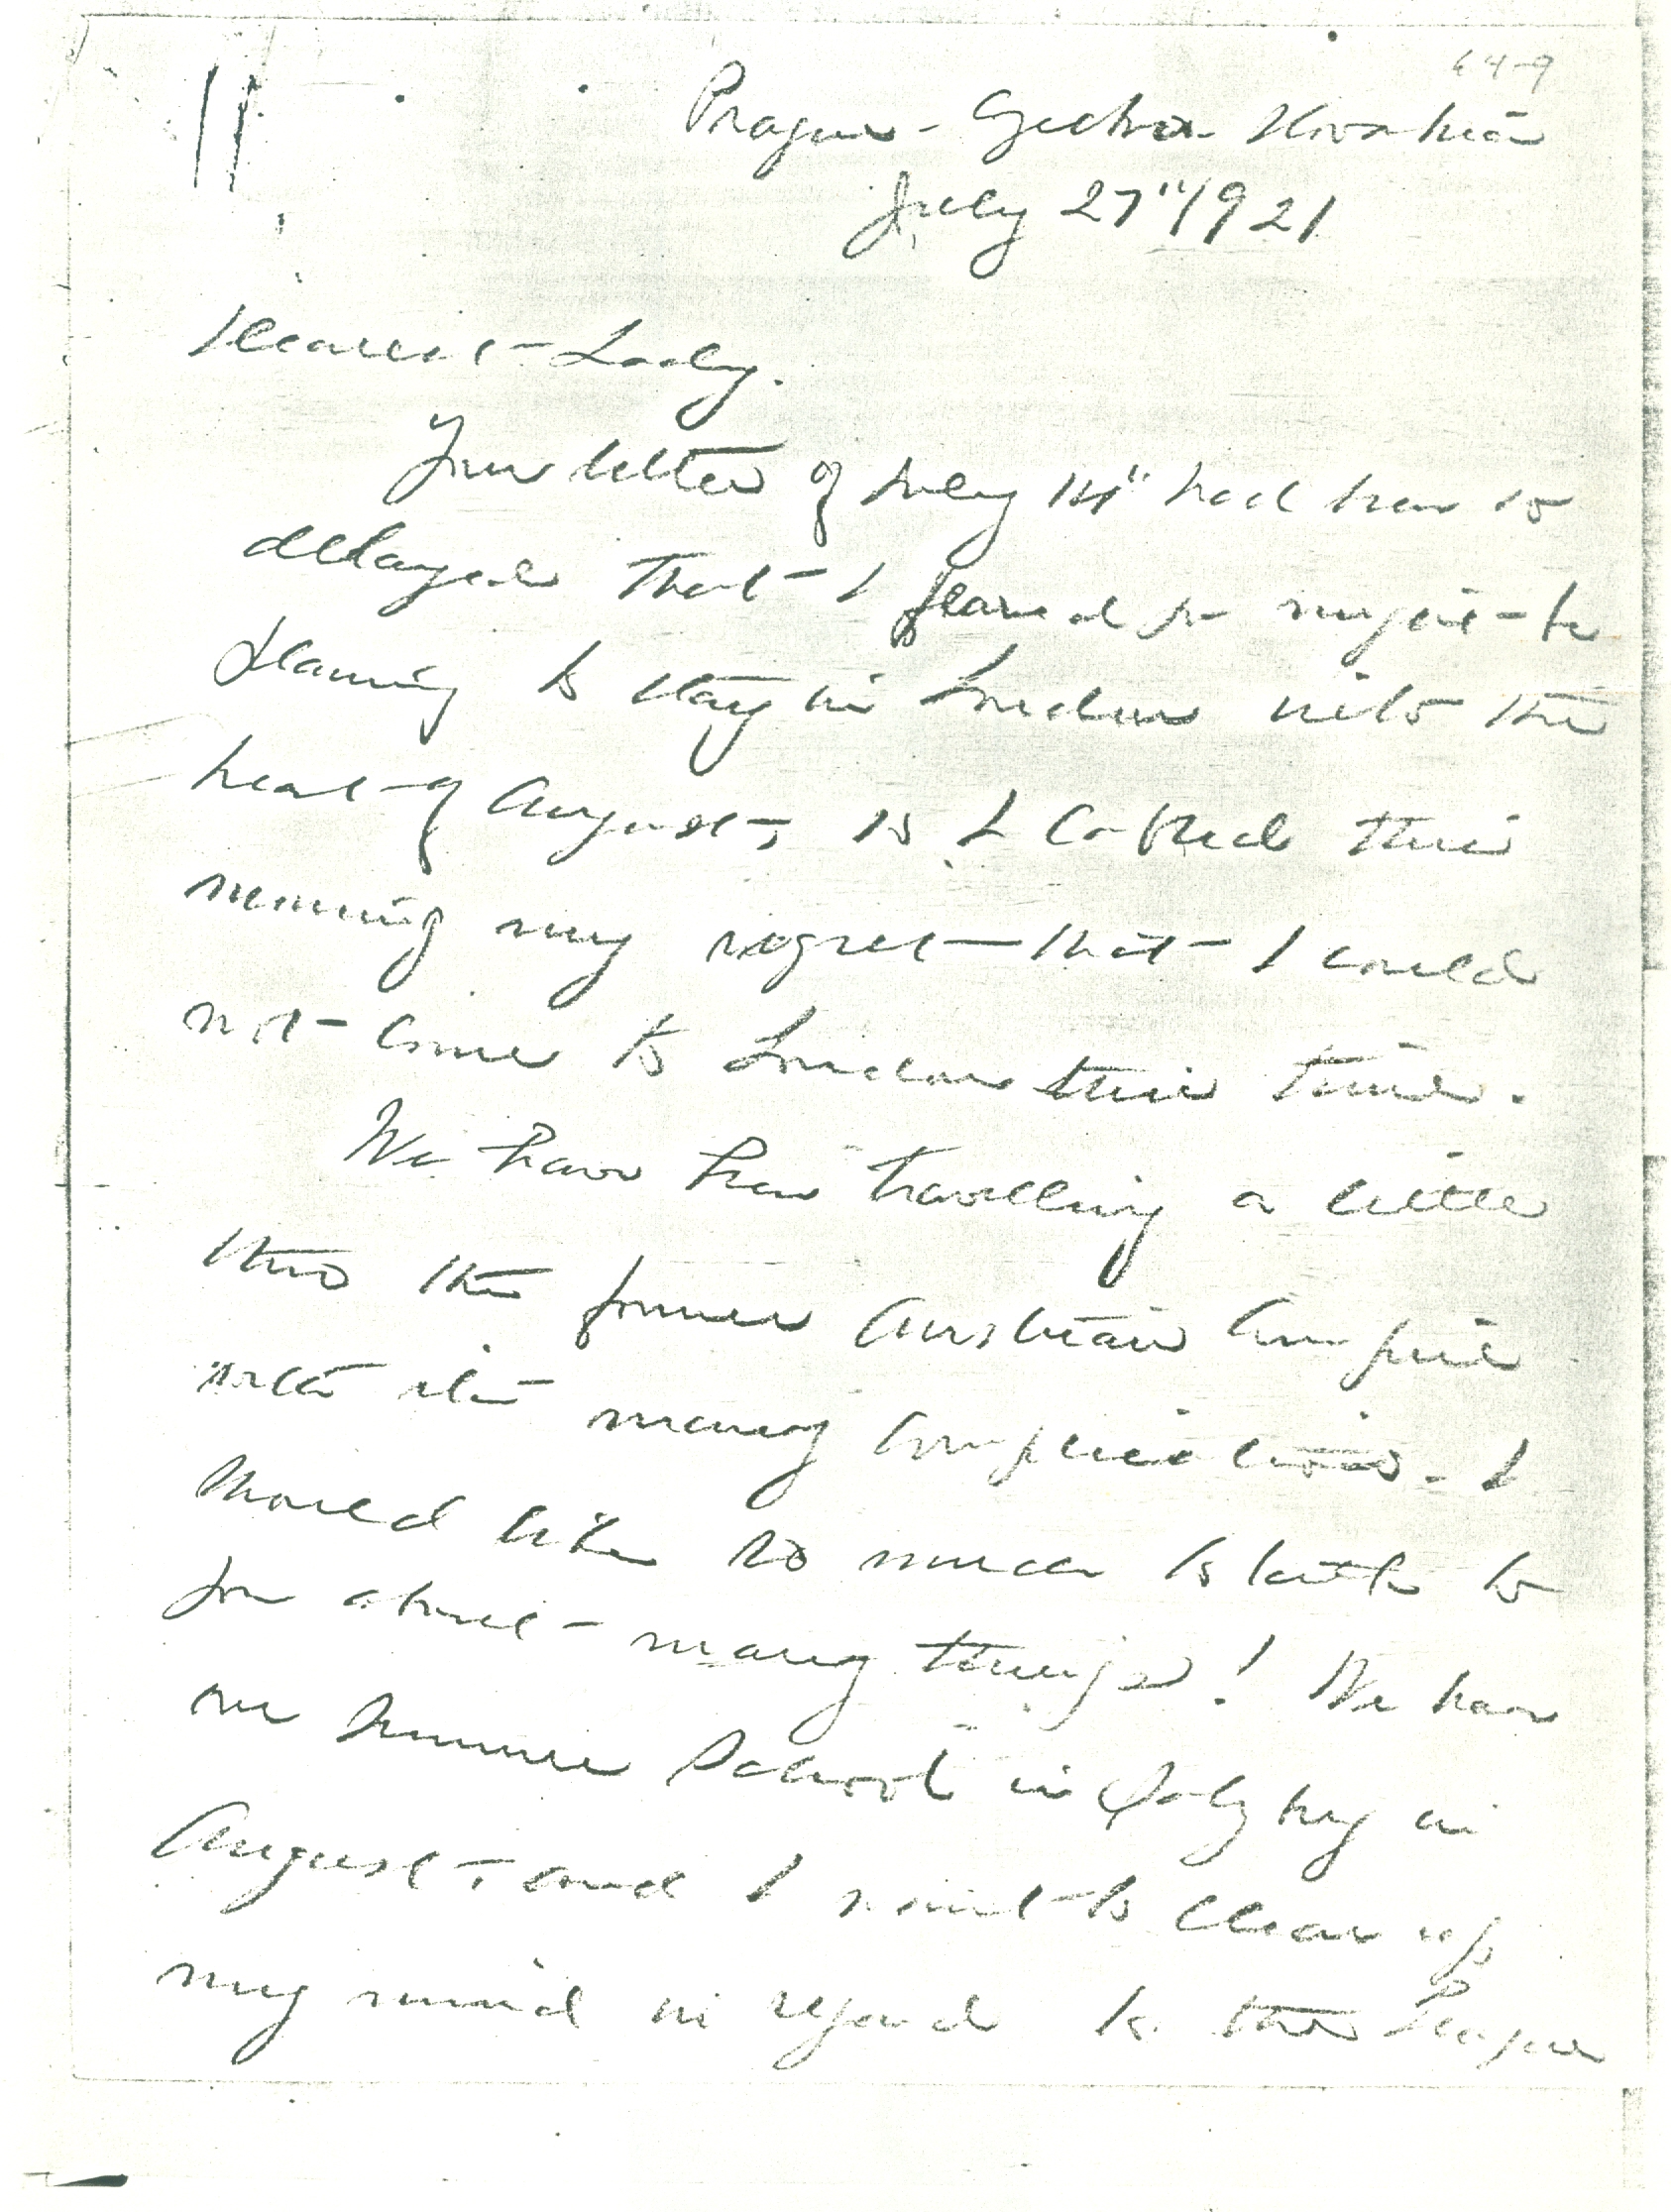 64-9
Prague - Czecho-Slovakia
July 27" 1921
Dearest Lady.
Your letter of July 14" had been so
delayed that I feared you might be
planning to stay in London into the
heat of August, so I cabled this
morning my regret that I could
not come to London this time.
We have been travelling a little
thro the former Austrian Empire
with its many complications. I
should like so much to talk to
you about many things! We have
our Summer School in Salzburg in
August, and I want to clear up
my mind in regard to the League